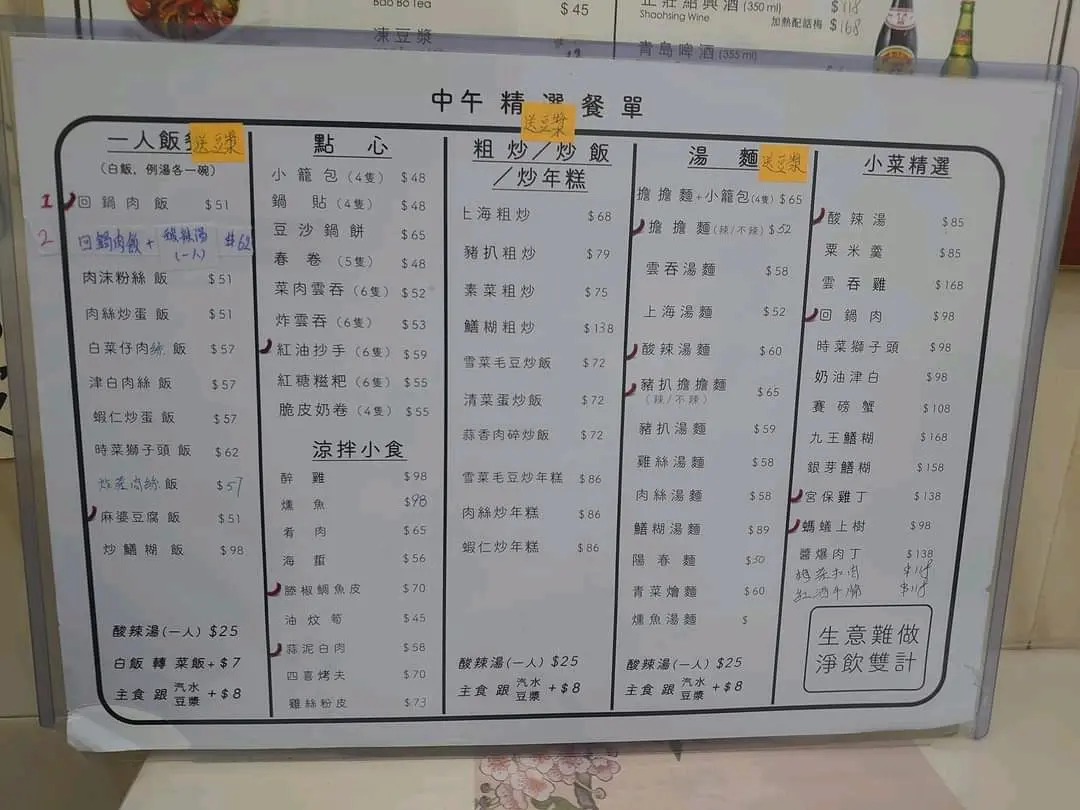 Bao Bo Tea
$ 45
凍豆漿
正莊紹興酒 (350 ml) $118
Shaohsing Wine 加熱配話梅 $168
青島啤酒 (355 ml)
中午精選餐單
送豆漿
一人飯
送豆漿
(白飯、例湯各一碗)
1 回鍋肉飯 $51
2 回鍋肉飯 + 酸辣湯 (一人) $62
肉沫粉絲飯 $51
肉絲炒蛋飯 $51
白菜仔肉絲飯 $57
津白肉絲飯 $57
蝦仁炒蛋飯 $57
時菜獅子頭飯 $62
炸菜肉絲飯 $57
麻婆豆腐飯 $51
炒鱔糊飯 $98
酸辣湯(一人) $25
白飯 轉 菜飯+ $7
主食 跟 汽水 豆漿 + $8
點心
小籠包 (4隻) $48
鍋貼 (4隻) $48
豆沙鍋餅 $65
春卷 (5隻) $48
菜肉雲吞 (6隻) $52
炸雲吞 (6隻) $53
紅油抄手 (6隻) $59
紅糖糍粑 (6隻) $55
脆皮奶卷 (4隻) $55
涼拌小食
醉雞 $98
燻魚 $98
肴肉 $65
海蜇 $56
籐椒鯛魚皮 $70
油炆筍 $45
蒜泥白肉 $58
四喜烤夫 $70
雞絲粉皮 $73
粗炒/炒飯
/炒年糕
上海粗炒 $68
豬扒粗炒 $79
素菜粗炒 $75
鱔糊粗炒 $138
雪菜毛豆炒飯 $72
清菜蛋炒飯 $72
蒜香肉碎炒飯 $72
雪菜毛豆炒年糕 $86
肉絲炒年糕 $86
蝦仁炒年糕 $86
酸辣湯(一人) $25
主食 跟 汽水 豆漿 + $8
湯麵
送豆漿
擔擔麵+小籠包(4隻) $65
擔擔麵(辣/不辣) $52
雲吞湯麵 $58
上海湯麵 $52
酸辣湯麵 $60
豬扒擔擔麵 $65
(辣/不辣)
豬扒湯麵 $59
雞絲湯麵 $58
肉絲湯麵 $58
鱔糊湯麵 $89
陽春麵 $50
青菜燴麵 $60
燻魚湯麵 $
酸辣湯(一人) $25
主食 跟 汽水 豆漿 + $8
小菜精選
酸辣湯 $85
粟米羹 $85
雲吞雞 $168
回鍋肉 $98
時菜獅子頭 $98
奶油津白 $98
賽磅蟹 $108
九王鱔糊 $168
銀芽鱔糊 $158
宮保雞丁 $138
螞蟻上樹 $98
醬爆肉丁 $138
梅菜扣肉 $118
紅酒牛腩 $118
生意難做
淨飲雙計